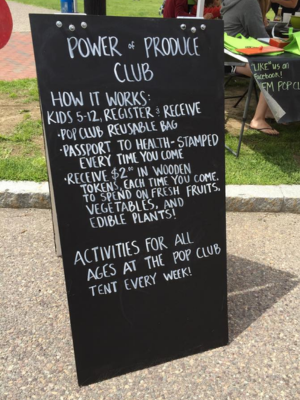 POWER of PRODUCE
CLUB
HOW IT WORKS:
KIDS 5-12, REGISTER & RECEIVE
• POP CLUB REUSABLE BAG
• PASSPORT TO HEALTH - STAMPED
EVERY TIME YOU COME
• RECEIVE $2⁰⁰ IN WOODEN
TOKENS, EACH TIME YOU COME,
TO SPEND ON FRESH FRUITS,
VEGETABLES, AND
EDIBLE PLANTS!
ACTIVITIES FOR ALL
AGES AT THE POP CLUB
TENT EVERY WEEK!
"LIKE" us on
Facebook!
FM POP CL